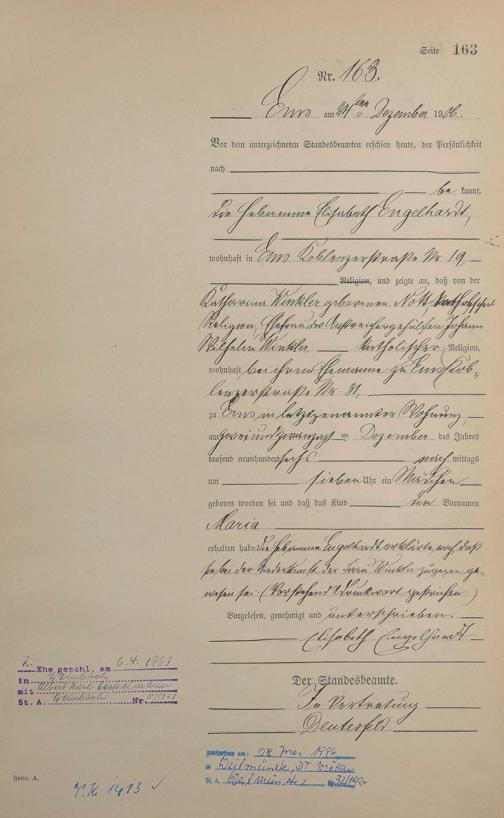 Seite 163
Nr. 163.
Ems am 24ten Dezember 1906.
Vor dem unterzeichneten Standesbeamten erschien heute, der Persönlichkeit
nach
be kannt,
die Hebamme Elisabeth Engelhardt,
wohnhaft in Ems Koblenzerstraße Nr 19,
Religion, und zeigte an, daß von der
Katharina Winkler geborenen Nott, katholischer
Religion, Ehefrau des Anstreichergehülfen Johann
Wilhelm Winkler katholischer Religion,
wohnhaft bei ihrem Ehemanne zu Ems Kob-
lenzerstraße Nr. 31,
zu Ems in letztgenannter Wohnung,
am zweiundzwanzigsten Dezember des Jahres
tausend neunhundert sechs nach mittags
um sieben Uhr ein Mädchen
geboren worden sei und daß das Kind den Vornamen
Maria
erhalten habe. Die Hebamme Engelhardt erklärte noch, daß
sie bei der Niederkunft der Frau Winkler zugegen ge-
wesen sei. (Vorstehend 1 Druckwort gestrichen)
Vorgelesen, genehmigt und unterschrieben.
Elisabeth Engelhardt
Der Standesbeamte.
In Vertretung
2. Ehe geschl. am 6.4.1963
in Weinbach
mit Karl
St. A. Weinbach Nr.
gestorben am: 28 Mai
in Weilmünster,
St. A. Weilmünster
Form. A.